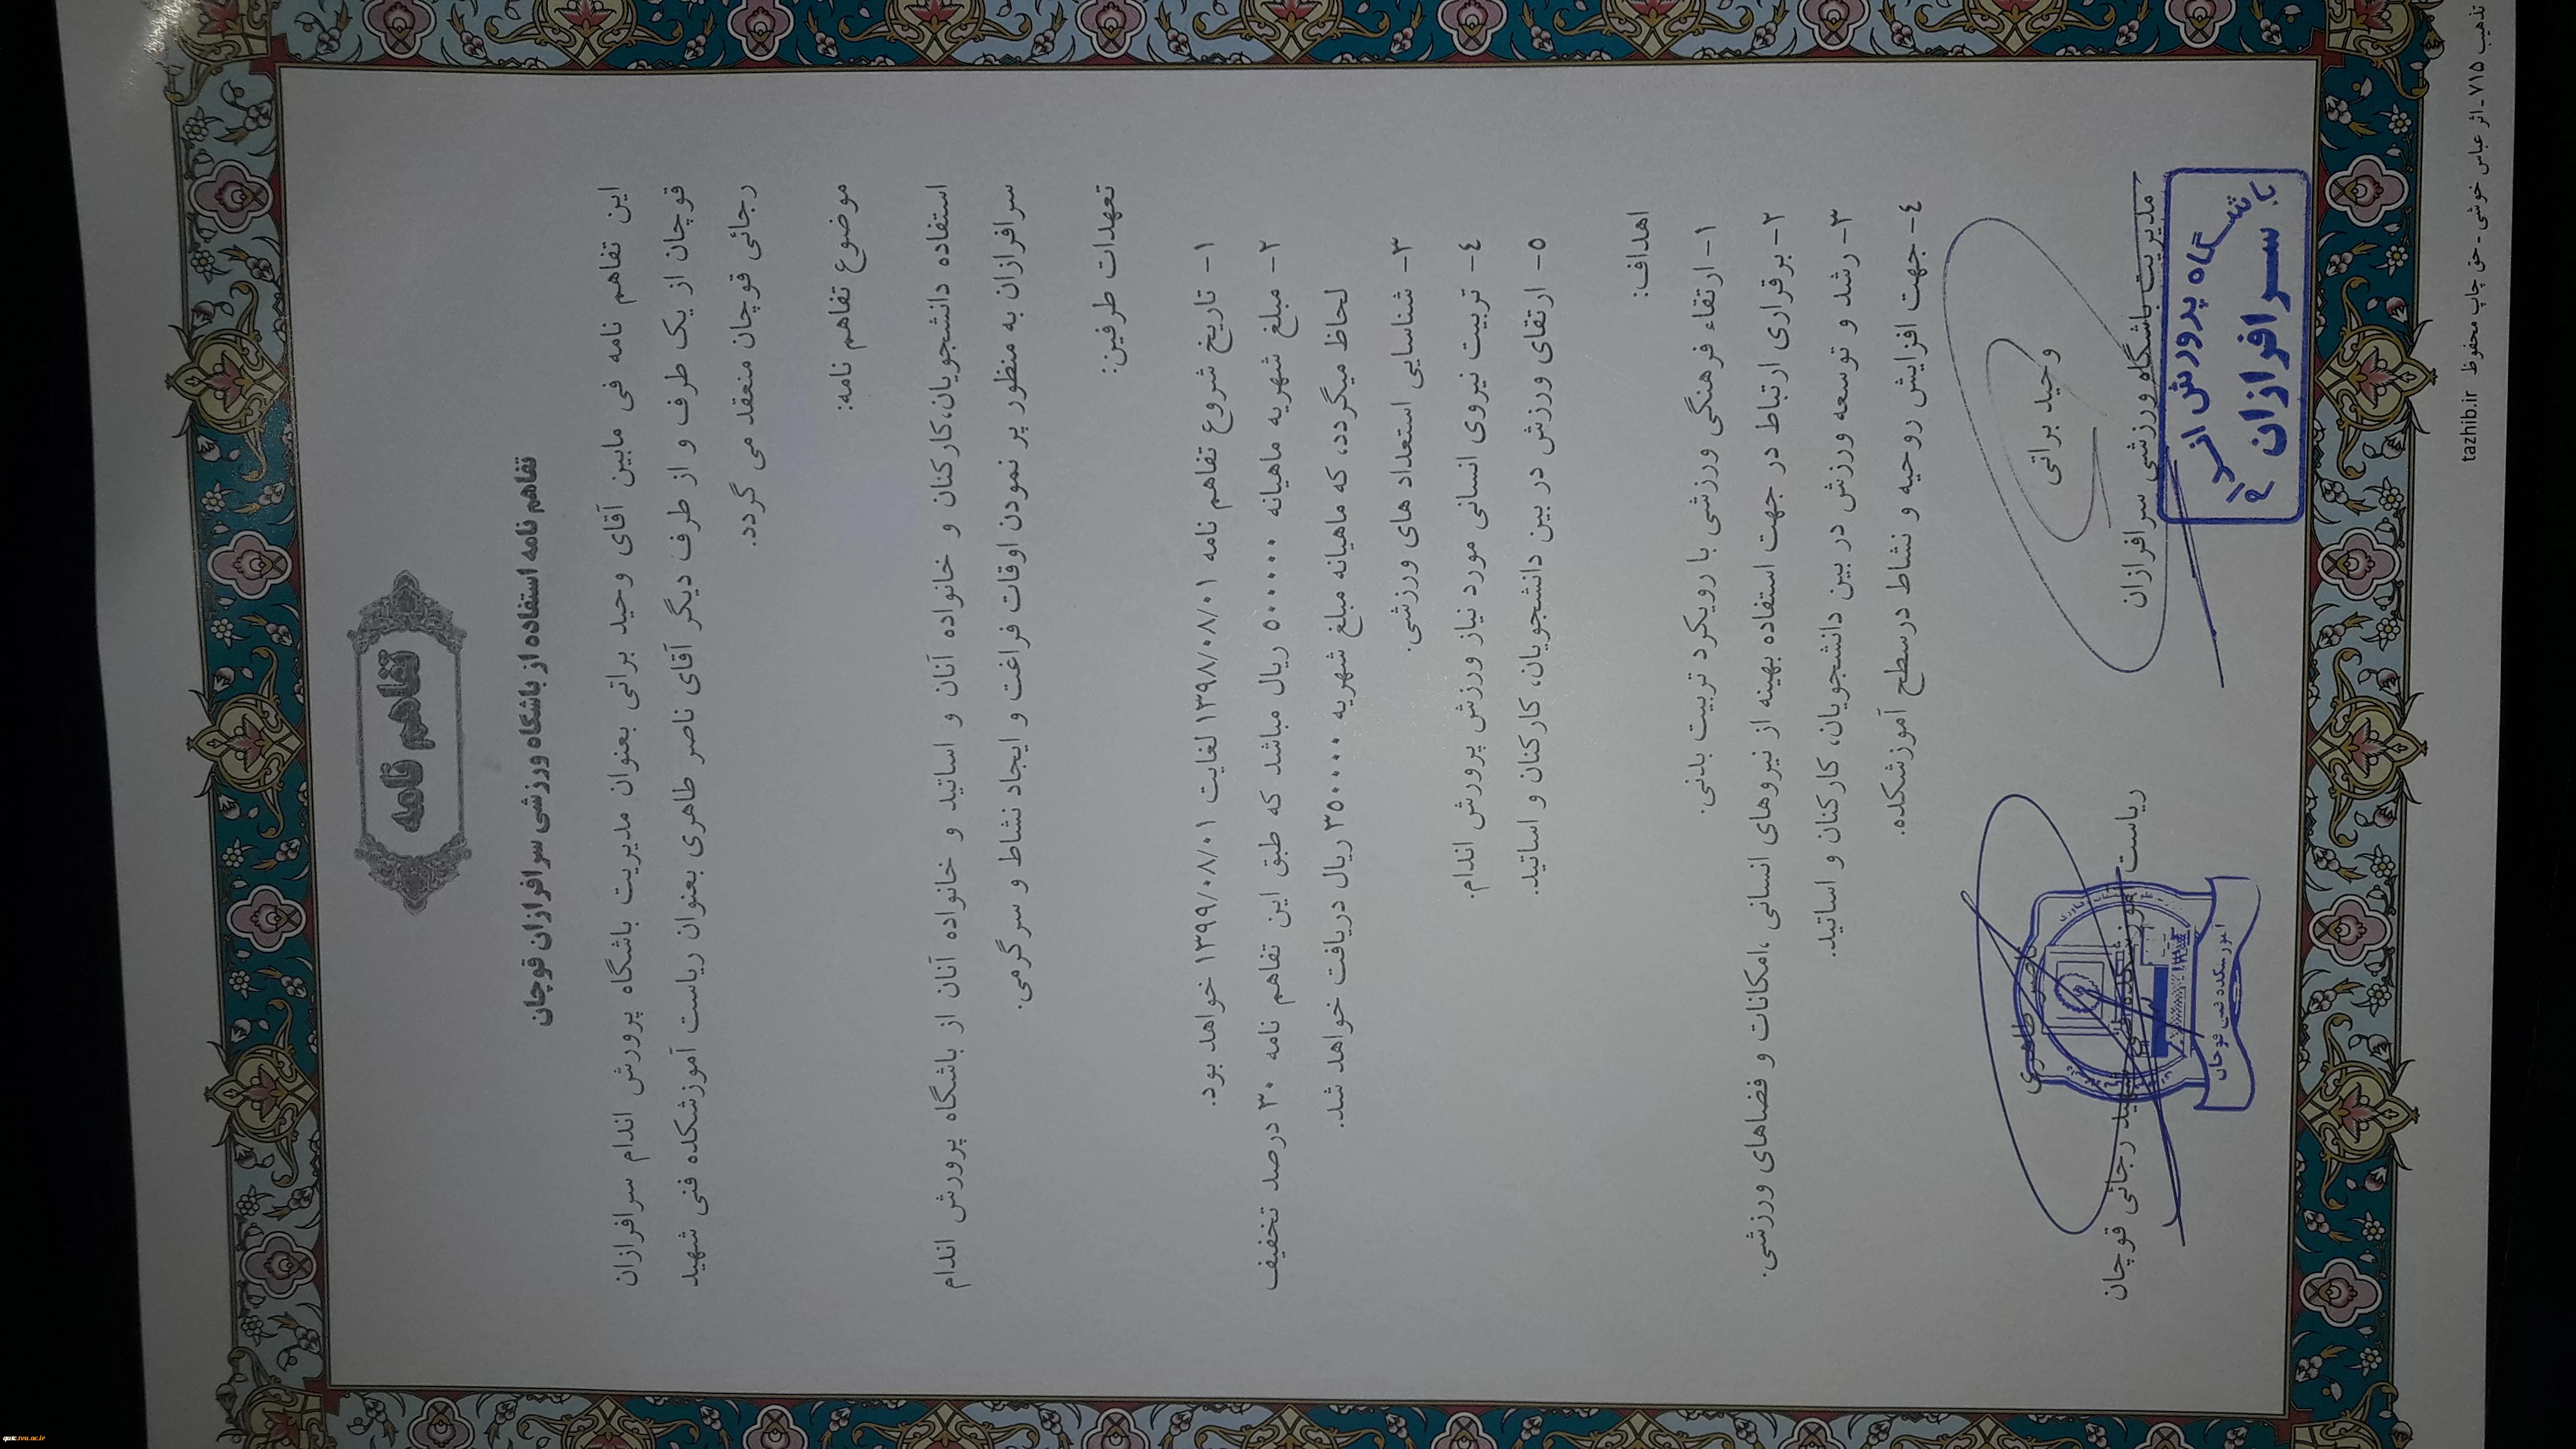 تفاهم نامه
تفاهم نامه استفاده از باشگاه ورزشی سرافرازان قوچان
این تفاهم نامه فی مابین آقای وحید براتی بعنوان مدیریت باشگاه پرورش اندام سرافرازان
قوچان از یک طرف و از طرف دیگر آقای ناصر طاهری بعنوان ریاست آموزشکده فنی شهید
رجائی قوچان منعقد می گردد.
موضوع تفاهم نامه:
استفاده دانشجویان،کارکنان و خانواده آنان و اساتید و خانواده آنان از باشگاه پرورش اندام
سرافرازان به منظور پر نمودن اوقات فراغت و ایجاد نشاط و سرگرمی.
تعهدات طرفین:
۱- تاریخ شروع تفاهم نامه ۱۳۹۸/۰۸/۰۱ لغایت ۱۳۹۹/۰۸/۰۱ خواهد بود.
۲- مبلغ شهریه ماهیانه ۵۰۰۰۰۰ ریال مباشد که طبق این تفاهم نامه ۳۰ درصد تخفیف
لحاظ میگردد، که ماهیانه مبلغ شهریه ۳۵۰۰۰۰ ریال دریافت خواهد شد.
۳- شناسایی استعداد های ورزشی.
۴- تربیت نیروی انسانی مورد نیاز ورزش پرورش اندام.
۵- ارتقای ورزش در بین دانشجویان، کارکنان و اساتید.
اهداف:
۱- ارتقاء فرهنگی ورزشی با رویکرد تربیت بدنی.
۲- برقراری ارتباط در جهت استفاده بهینه از نیروهای انسانی ،امکانات و فضاهای ورزشی.
۳- رشد و توسعه ورزش در بین دانشجویان، کارکنان و اساتید.
۴- جهت افزایش روحیه و نشاط درسطح آموزشکده.
وحید براتی
مدیریت باشگاه ورزشی سرافرازان
باشگاه پرورش اندام
سرافرازان
ناصر طاهری
ریاست آموزشکده فنی شهید رجائی قوچان
آموزشکده فنی قوچان
تذهیب ۷۱۵ - اثر عباس خوشی - حق چاپ محفوظ tazhib.ir
quic.tvu.ac.ir